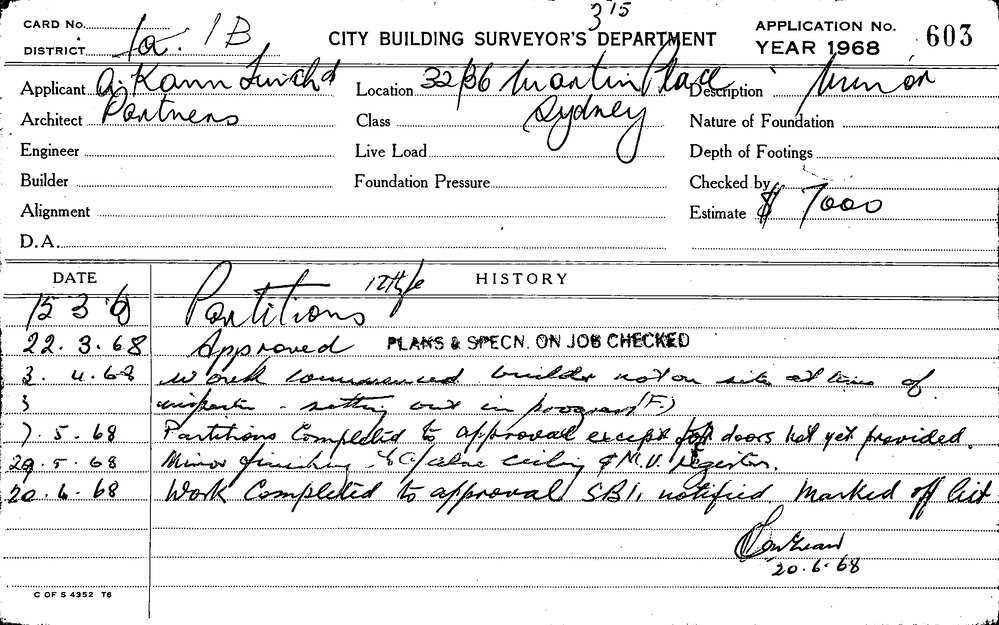 315
CARD No. 1a. 1B
DISTRICT
CITY BUILDING SURVEYOR'S DEPARTMENT
APPLICATION No. 603
YEAR 1968
Applicant
Location 32/36 Martin Place
Sydney
Description Minor
Architect Partners
Class
Nature of Foundation
Engineer
Live Load
Depth of Footings
Builder
Foundation Pressure
Checked by
Alignment
Estimate $ 7000
D.A.
DATE
HISTORY
15 3 6 Partitions
22.3.68 Approved PLANS & SPECN. ON JOB CHECKED
3. 4.68 Work commenced builder not on site at time of
inspection - setting out in progress (F.)
7.5.68 Partitions Completed to approval except for doors not yet provided.
29.5.68 Minor finishing ceiling & M.V. register.
20.6.68 Work Completed to approval SB1, notified Marked off list
20.6.68
C OF S 4352 T6